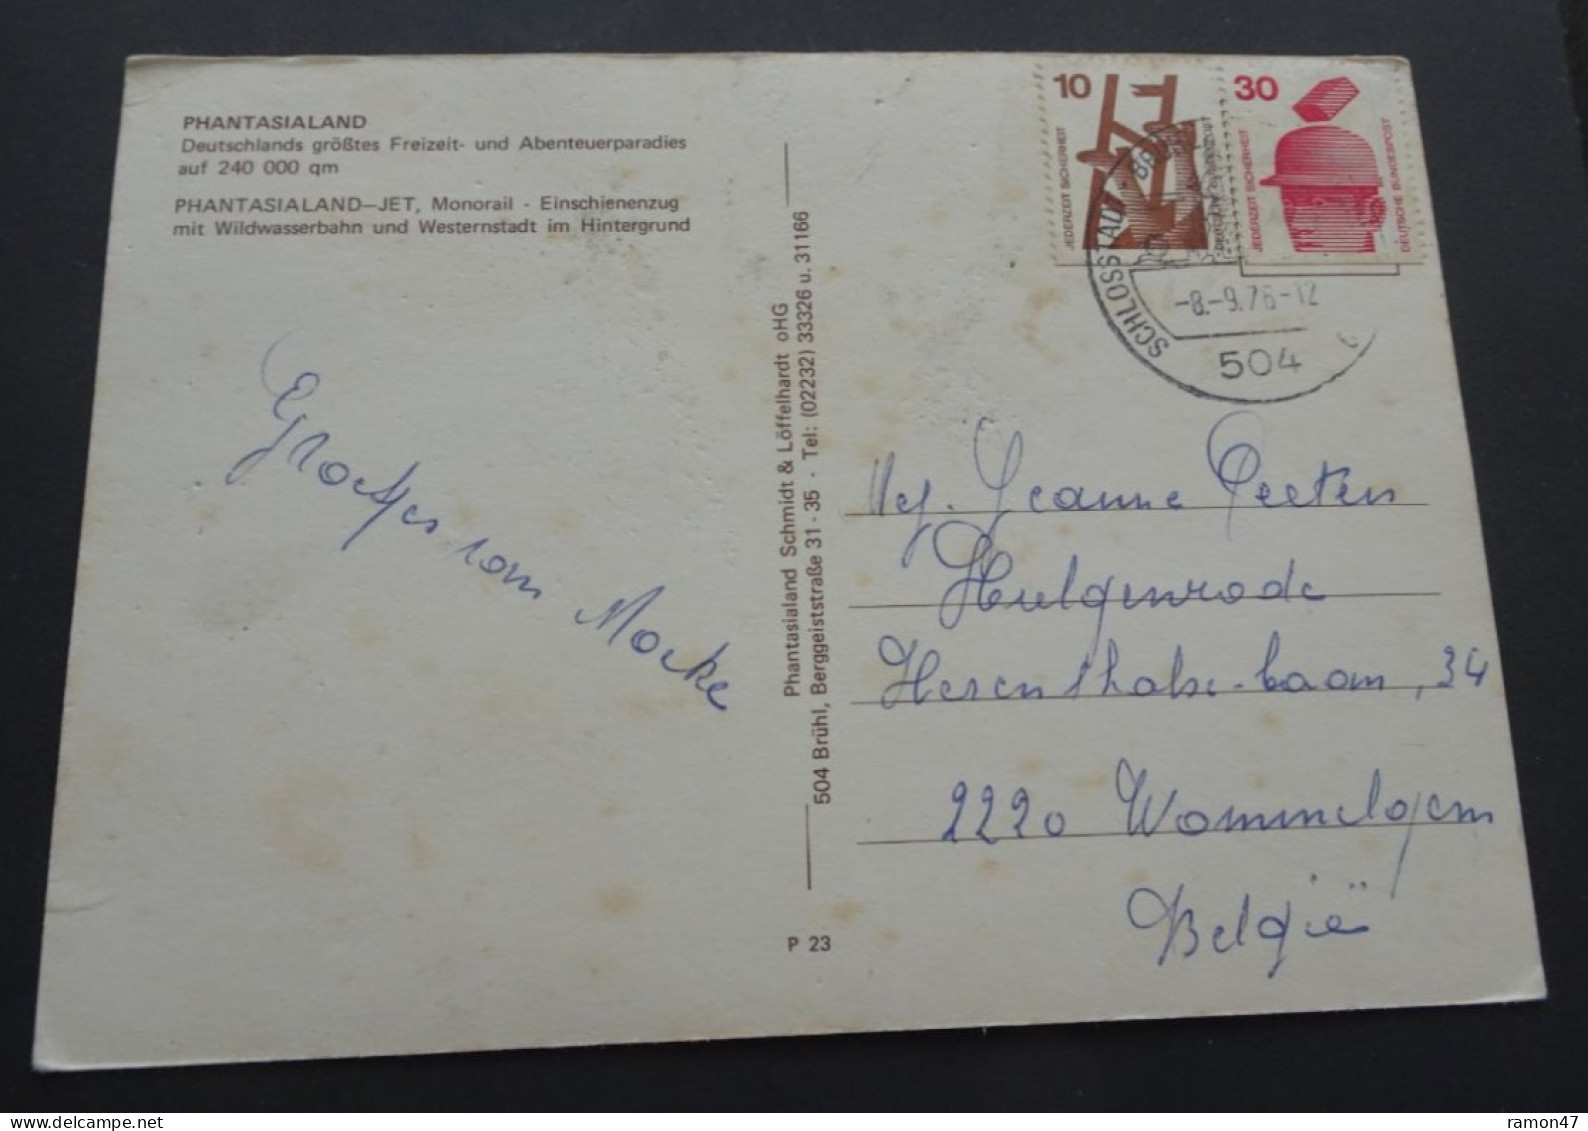 PHANTASIALAND
Deutschlands größtes Freizeit- und Abenteuerparadies
auf 240 000 qm
PHANTASIALAND—JET, Monorail - Einschienenzug
mit Wildwasserbahn und Westernstadt im Hintergrund
Groetjes van Mocke
Phantasialand Schmidt & Löffelhardt oHG
504 Brühl, Berggeiststraße 31-35 - Tel: (02232) 33326 u. 31166
P 23
10
JEDERZEIT SICHERHEIT
30
JEDERZEIT SICHERHEIT
DEUTSCHE BUNDESPOST
SCHLOSSSTADT
-8.-9.76-12
504
Mej. Jeanne Peeten
Hulgenrode
Herenthalse-baan, 34
2220 Wommelgem
België
delcampe.net
ramon47